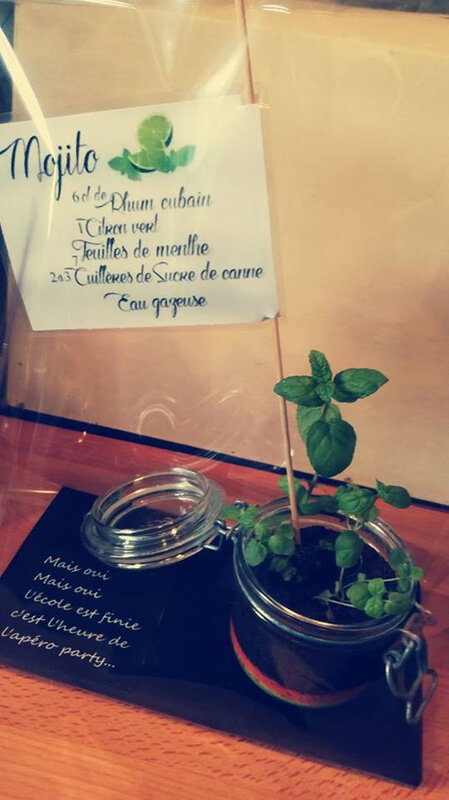 Mojito
6 cl de Rhum cubain
1 Citron vert
7 Feuilles de menthe
2 à 3 Cuillères de Sucre de canne
Eau gazeuse
Mais oui
Mais oui
L'école est finie
c'est l'heure de
L'apéro party...